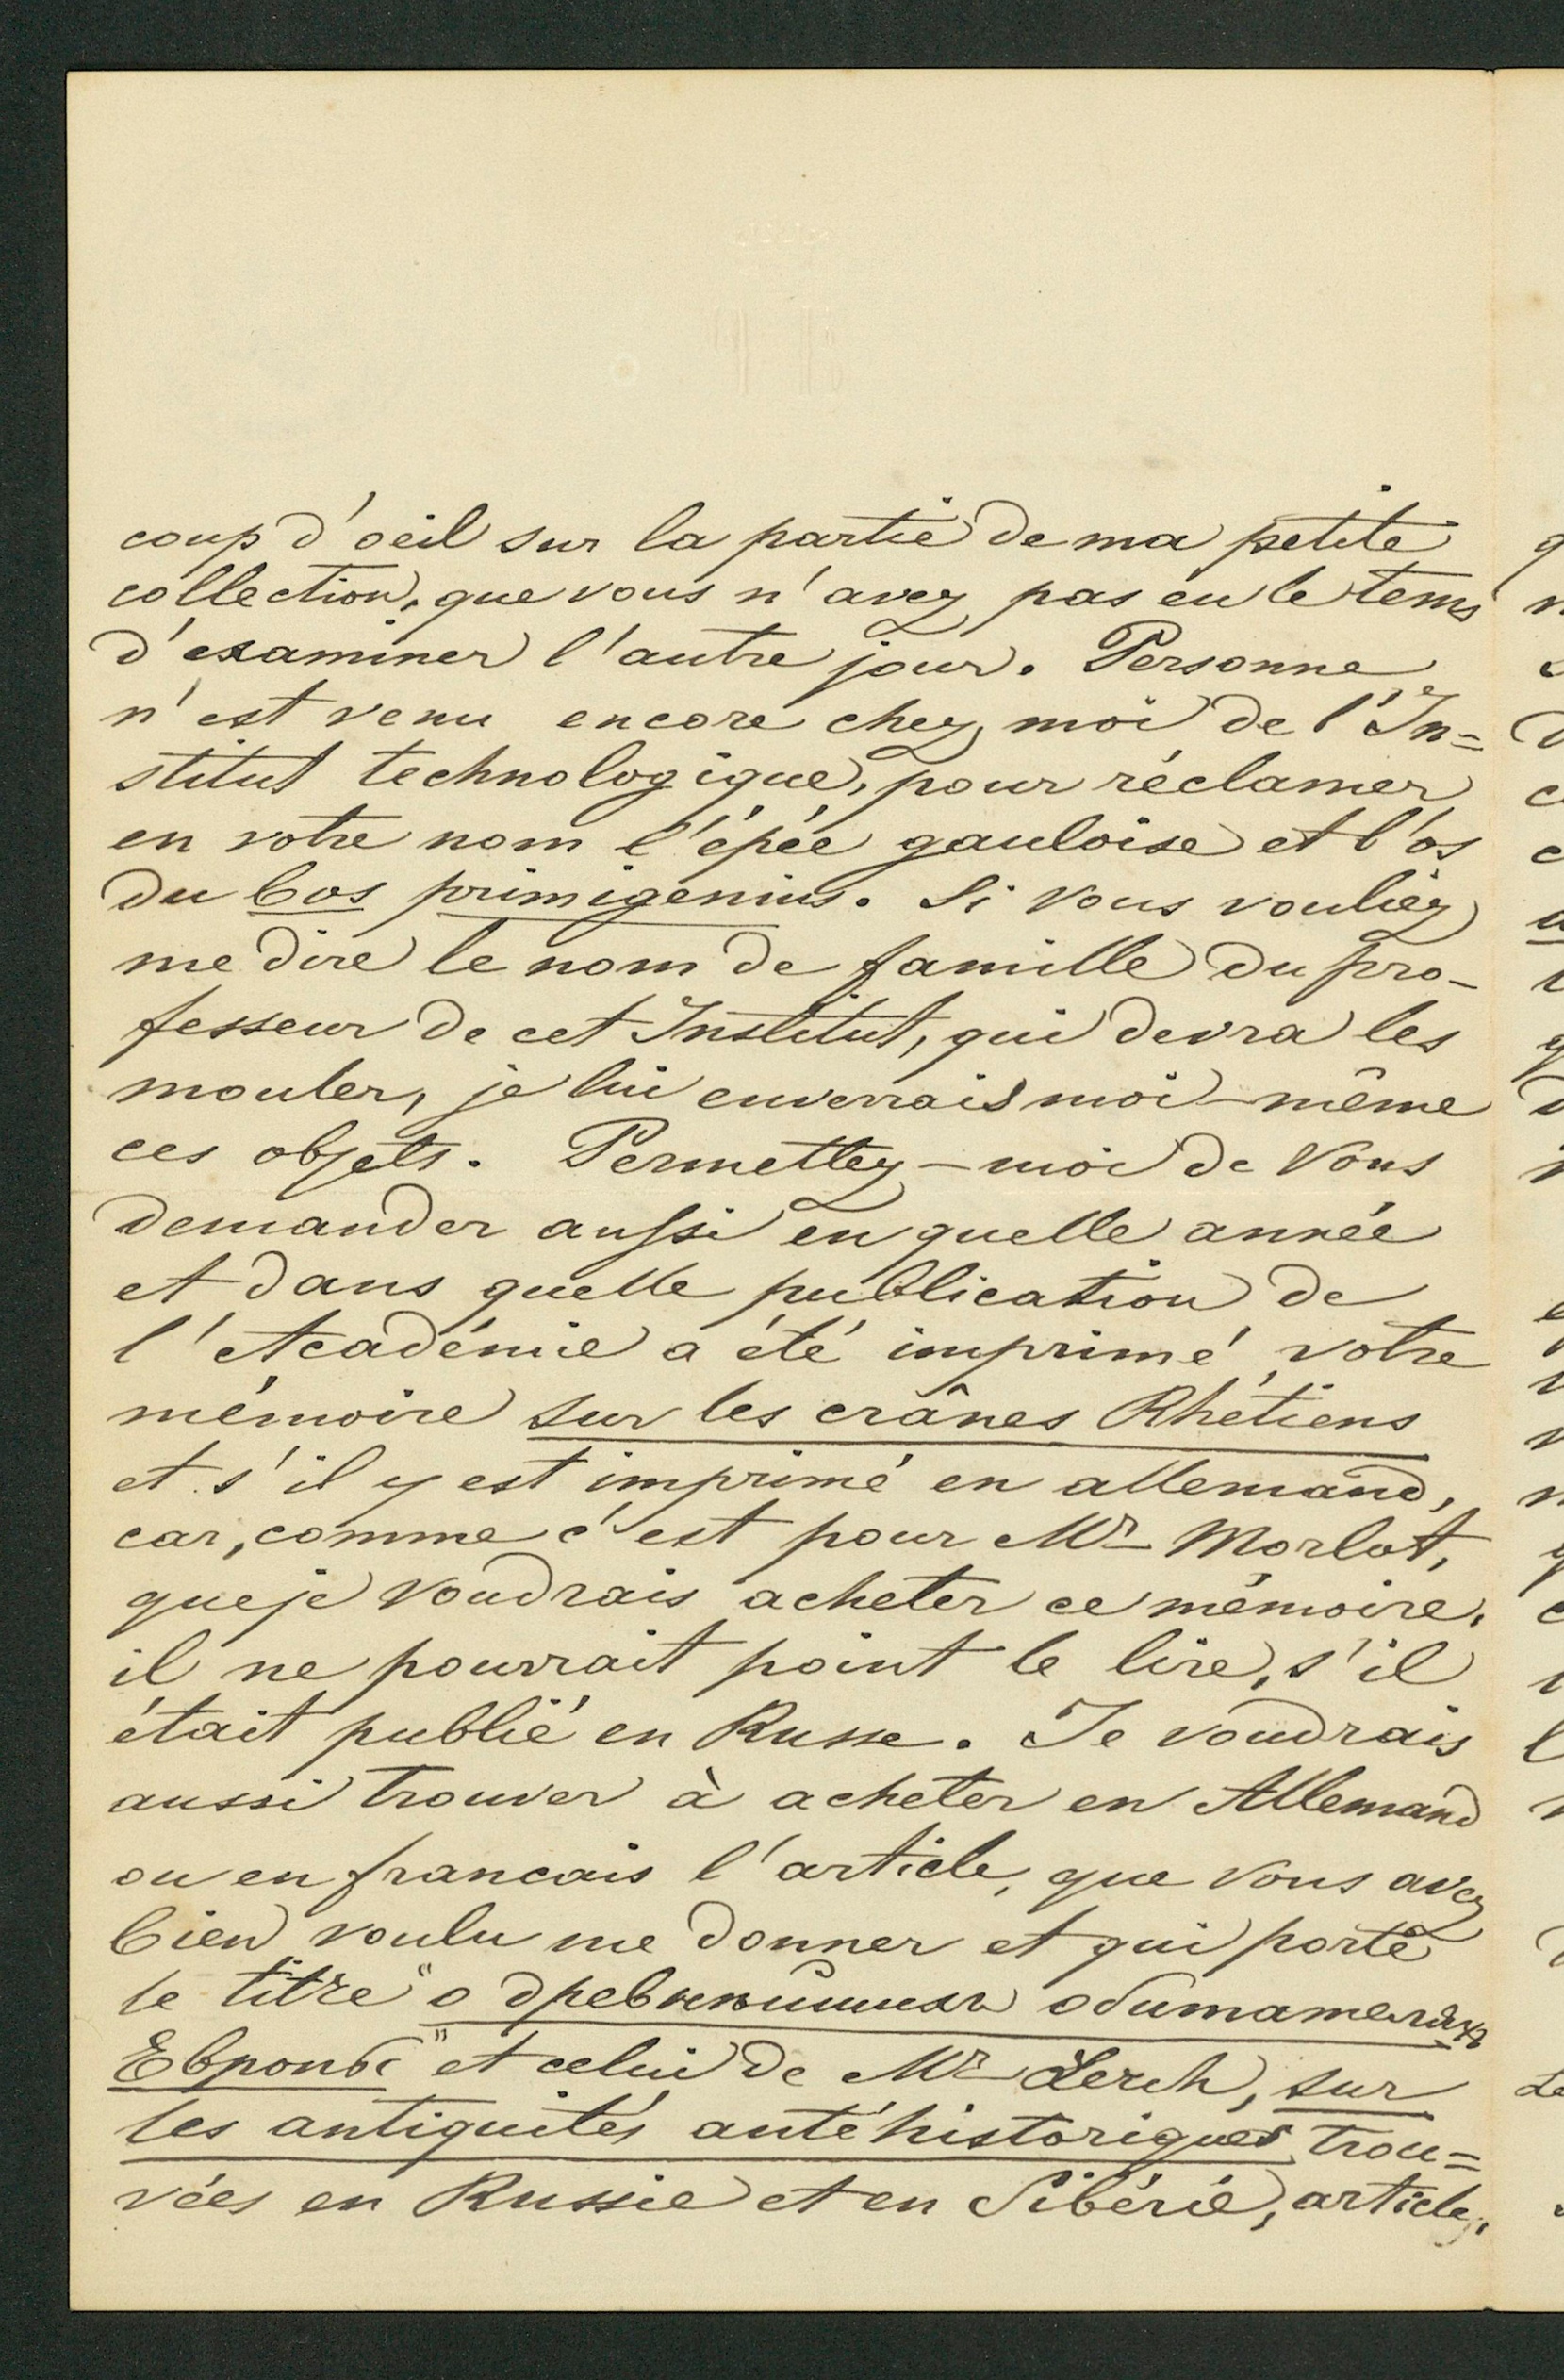 coup d'oeil sur la partie de ma petite
collection, que vous n'avez pas eu le tems
d'examiner l'autre jour. Personne
n'est venu encore chez moi de l'In=
stitut technologique, pour réclamer
en votre nom l'épée gauloise et l'os
du bos primigenius. Si vous vouliez
me dire le nom de famille du pro-
fesseur de cet Institut, qui devra les
mouler, je lui enverrais moi-même
ces objets. Permettez-moi de Vous
demander aussi en quelle année
et dans quelle publication de
l'Académie a été imprimé votre
mémoire sur les crânes Rhétiens
et s'il y est imprimé en allemand,
car, comme c'est pour Mr Morlot,
que je voudrais acheter ce mémoire,
il ne pourrait point le lire, s'il
était publié en Russe. Je voudrais
aussi trouver à acheter en Allemand
ou en francais l'article, que Vous avez
bien voulu me donner et qui porte
le titre "о древнѣйшихъ обитателяхъ
Европы" et celui de Mr Lerch, sur
les antiquités antéhistoriques trou=
vées en Russie et en Sibérie, article,